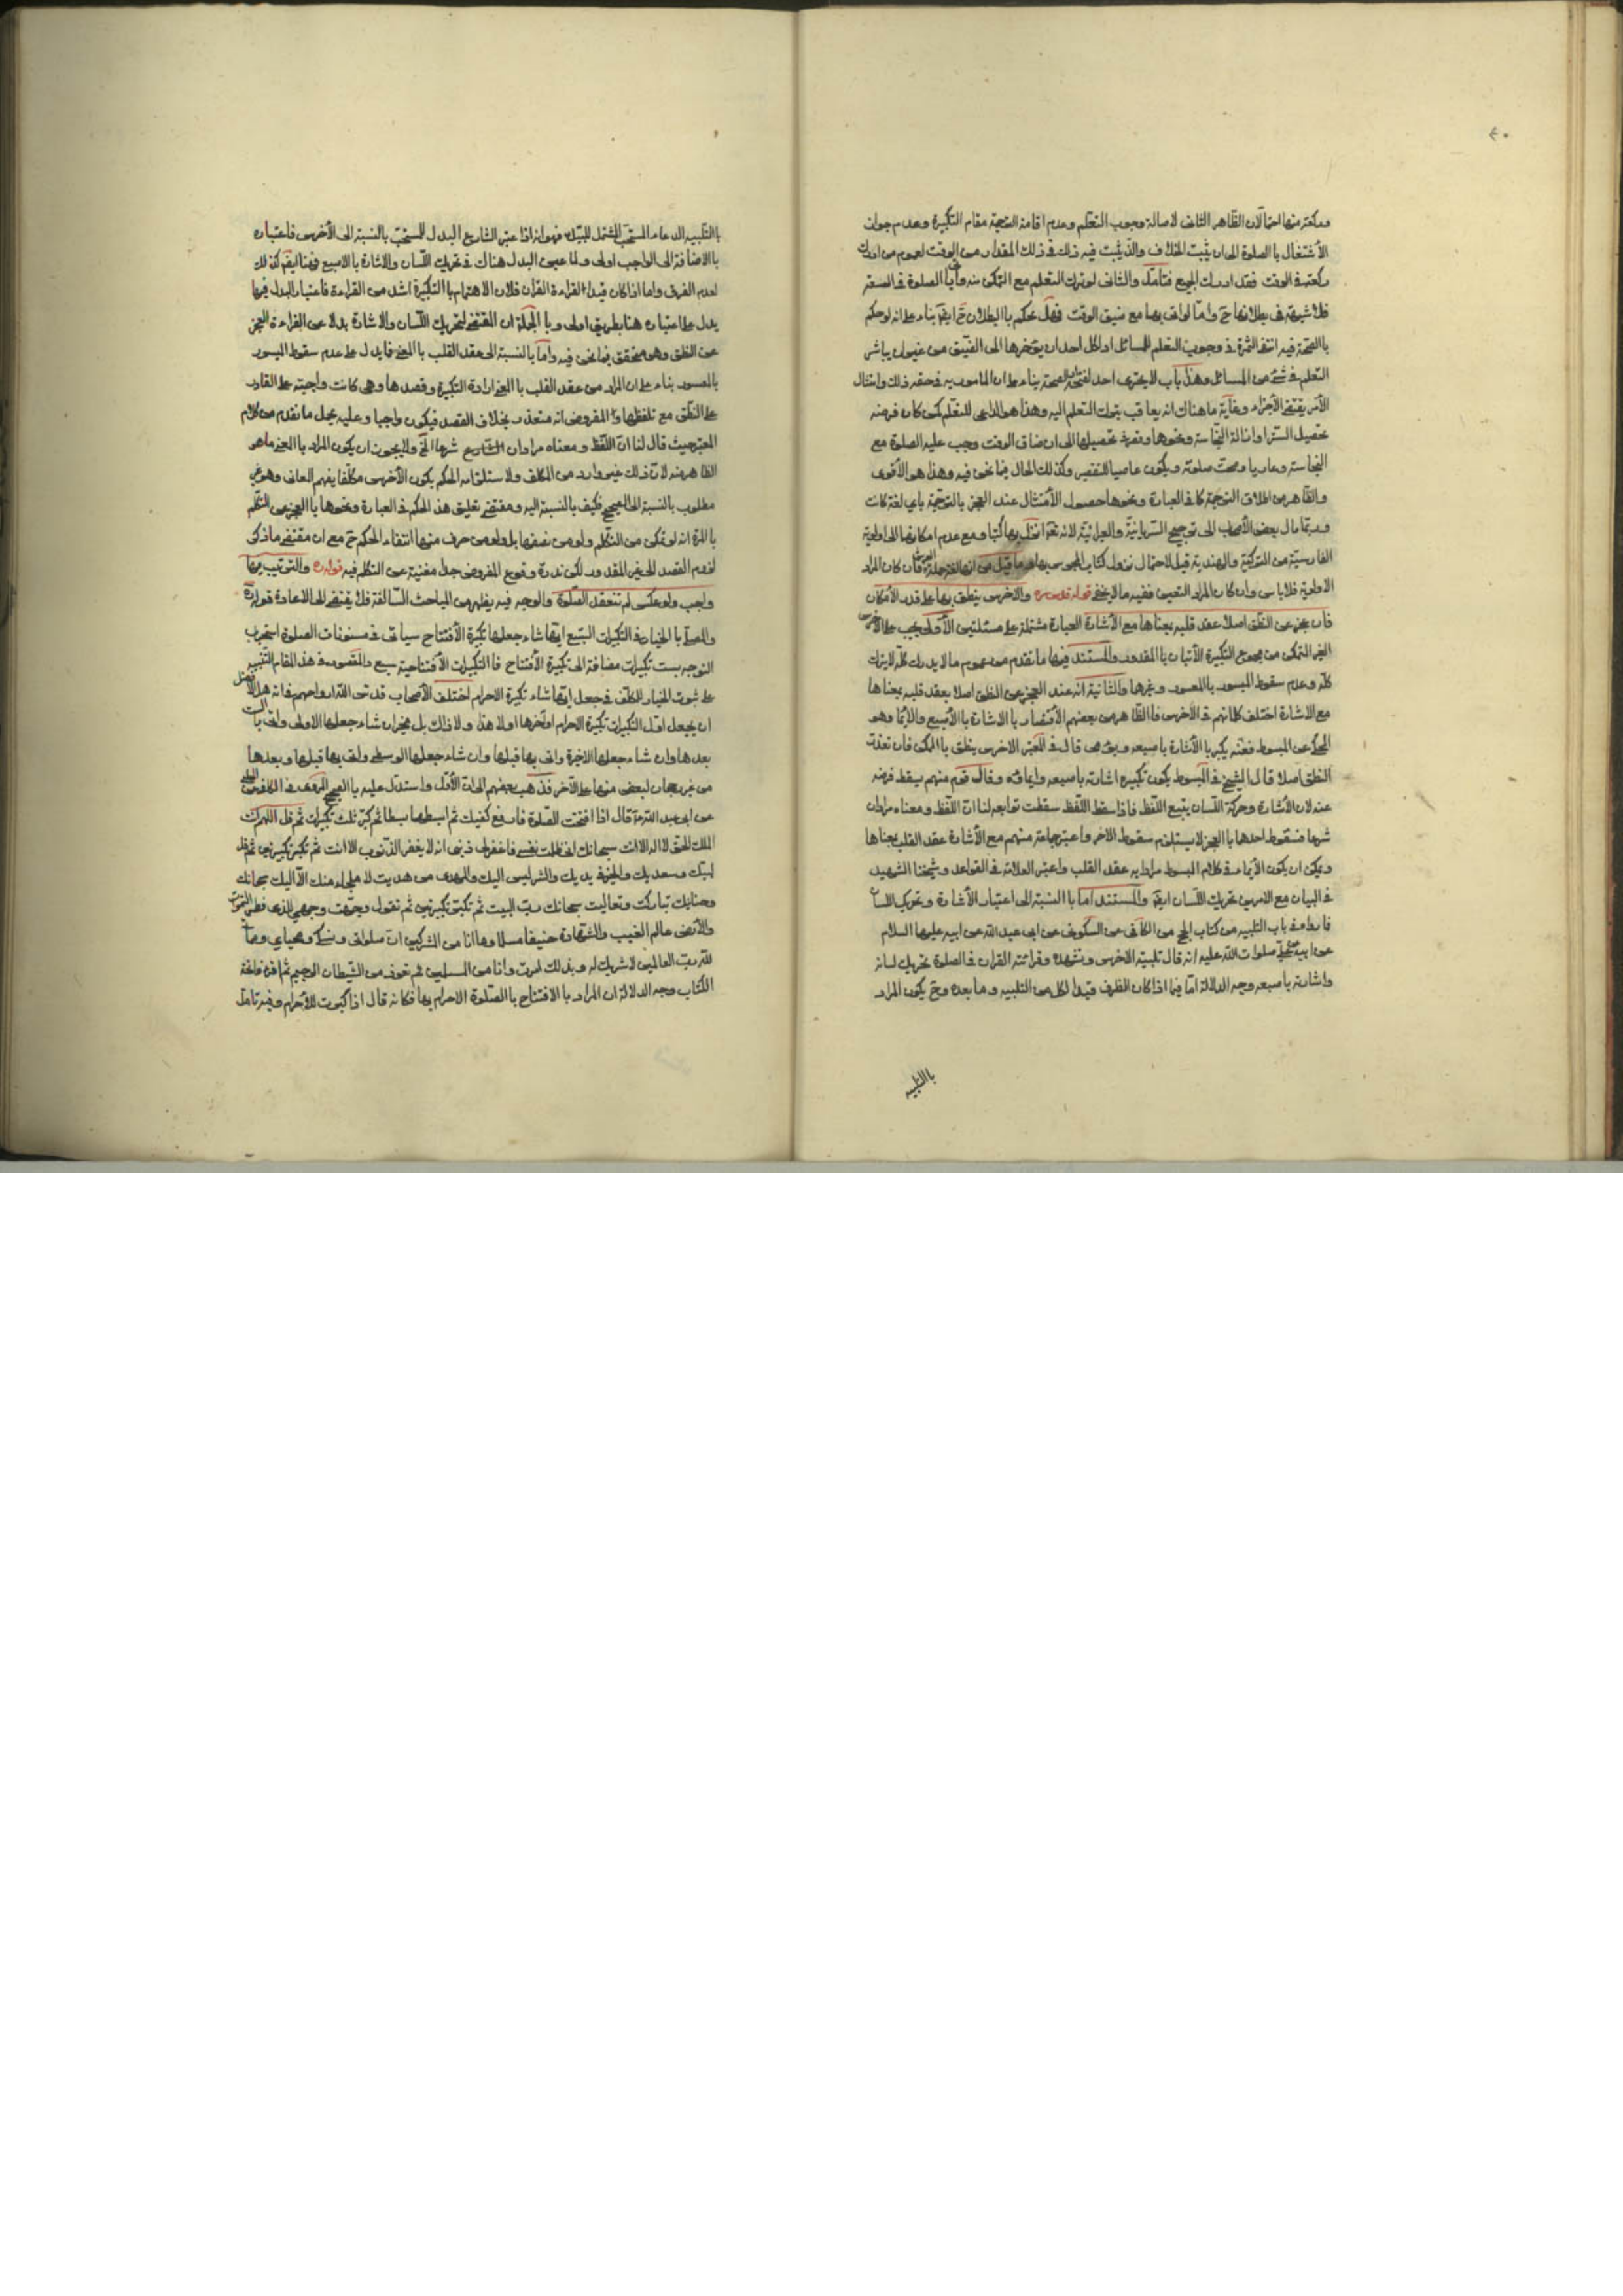 ٤٠
وركعة منها احتمالان الظاهر الثاني لاصالة وجوب التعلم وعدم اقامة الترجمة مقام التكبيرة وعدم جواز
الأشتغال بالصلوة الى ان يثبت الخلاف والذي ثبت فيه ذلك في ذلك المقدار من الوقت لعموم من ادرك
ركعة في الوقت فقد ادرك الجميع فتامل والثاني لو ترك التعلم مع التمكن منه واتى بالصلوة في السعة
فلا شبهة في بطلانها ح واما لو اتى بها مع ضيق الوقت فهل يحكم باالبطلان ح ايضا بناء على انه لو حكم
باالصحة فيه انتفى الثمرة في وجوب التعلم للمسائل اذ لكل احد ان يؤخرها الى الضيق من غير ان يباشر
التعلم في شئ من المسائل وهذا باب لا يجترى احد لفتحه الصحة بناء على ان المامور به في حقه ذلك وامتثال
الأمر يقتضى الأجزاء وغاية ما هناك انه يعاقب بترك التعلم اليه وهذا هو الداعي للتعلم كمن كان فرضه
تحصيل الستر او ازالة النجاسة ونحوها وتفرط تحصيلها الى ان ضاق الوقت وجب عليه الصلوة مع
النجاسة وعاريا وصحت صلوته ويكون عاصيا للتقصير وكذلك الحال فيما نحن فيه وهذا هو الأقوى
والظاهر من اطلاق الترجمة كما في العبارة ونحوها حصول الأمتثال عند العجز باالترجمة باي لغة كانت
وربما مال بعض الأصحاب الى ترجيح السريانية والعبرانية لانه تعم انزل بها كتبا ومع عدم امكانها الى اولوية
الفارسية من التركية والهندية قيل لاحتمال نزول كتاب المجوس بها وما قيل من انها لغة حملة العرش فان كان المراد
الاولوية فلا باس وان كان المراد التعيين ففيه ما لا يخفى قوله قدس سره والاخرس ينطق بها على قدر الأمكان
فان عجز عن النطق اصلا عقد قلبه بمعناها مع الأشارة العبارة مشتملة على مسئلتين الأولى يجب على الاخرس
الغير المتمكن من مجموع التكبيرة الأتيان باالمقدور والمستند فيها ما تقدم من عموم ما لا يدرك كله لا يترك
كله وعدم سقوط الميسور باالمعسور وغيرها والثانية انه عند العجز عن النطق اصلا يعقد قلبه بمعناها
مع الاشارة اختلف كلماتهم في الأخرس فاالظاهر من بعضهم الأقتصار باالاشارة باالأصبع والأيماء وهو
المحكى عن المبسوط فعنه يكبر باالأشارة باصبعه ويؤمى قال في المعتبر الاخرس ينطق باالممكن فان تعذرت
النطق اصلا قال الشيخ في المبسوط يكون تكبيره اشارته باصبعه وايمائه وقال قوم منهم يسقط فرضه
عنه لان الأشارة وحركة اللسان يتبع اللفظ فاذا سقط اللفظ سقطت توابعه لنا ان اللفظ ومعناه مرادان
شرعا فسقوط احدها باالعجز لا يستلزم سقوط الاخر واعتبر جماعة منهم مع الأشارة عقد القلب بمعناها
ويمكن ان يكون الأيماء في كلام المبسوط مرادا به عقد القلب واعتبر العلامة في القواعد وشيخنا الشهيد
في البيان مع الامرين تحريك اللسان ايضا والمستند اما باالنسبة الى اعتبار الأشارة وتحريك اللسان
فما رواه في باب التلبية من كتاب الحج من الكافي عن السكوني عن ابى عبد الله عن ابيه عليهما السلام
عن ابيه على صلوات الله عليه انه قال تلبية الاخرس وتشهده وقرائته القران في الصلوة تحريك لسانه
واشارته باصبعه وجه الدلالة اما فيما اذا كان الظرف قيدا لكل من التلبيه وما بعده وح يكون المراد
باالتلبيه
باالتلبيه الدعاء المستحب المشتمل للبيك فهو انه اذا اعتبر الشارع البدل للمستحب باالنسبة الى الأخرس فاعتباره
باالاضافة الى الواجب اولى ولما عين البدل هناك في تحريك اللسان والاشارة باالاصبع فهنا ايضا كذلك
لعدم الفرق واما اذا كان قيدا لقراءة القران فلان الاهتمام باالتكبيرة اشد من القراءة فاعتبار البدل فيها
يدل على اعتباره هنا بطريق اولى وباالجملة ان المقتضى لتحريك اللسان والاشارة بدلا عن القراءة العجز
عن النطق وهو متحقق فيما نحن فيه واما باالنسبة الى عقد القلب باالمعنى فما يدل على عدم سقوط الميسور
باالمعسور بناء على ان المراد من عقد القلب باالمعنى ارادة التكبيرة وقصدها وهى كانت واجبته على القادر
على النطق مع تلفظها والمفروض انه متعذر بخلاف القصد فيكون واجبا وعليه يحمل ما تقدم من كلام
المعتبر حيث قال لنا ان اللفظ ومعناه مرادان الشارع شرعا الخ ولا يجوز ان يكون المراد باالمعنى ما هو
الظاهر منه لان ذلك غير مراد من المكلف ولاستلزامه الحكم بكون الأخرس مكلفا بفهم المعاني وهو غير
مطلوب باالنسبة الى الصحيح فكيف باالنسبة اليه ومقتضى تعليق هذا الحكم في العبارة ونحوها باالعجز عن التكلم
باالمرة انه لو تمكن من التكلم ولو من نصفها بل ولو من حرف منها انتفاء الحكم ح مع ان مقتضى ما ذكر
لزوم القصد الى غير المقدور لكن ندرة وقوع المفروض جدا مغنية عن التكلم فيه قوله ره والترتيب فيها
واجب ولو عكس لم تنعقد الصلوة والوجه فيه يظهر من المباحث السالفة فلا يفتقر الى الاعادة قوله ره
والمصلى باالخيار في التكبيرات السبع ايها شاء جعلها تكبيرة الأفتتاح سياتى في مسنونات الصلوة استحباب
التوجه بست تكبيرات مضافة الى تكبيرة الأفتتاح فاالتكبيرات الأفتتاحية سبع والمقصود في هذا المقام التنبيه
على ثبوت الخيار للمكلف في جعل ايها شاء تكبيرة الاحرام اختلف الأصحاب قدس الله ارواحهم في انه هل الأفضل
ان يجعل اول التكبيرات تكبيرة الاحرام او اخرها اولا هذا ولا ذاك بل مخير ان شاء جعلها الاولى واتى باالست
بعدها وان شاء جعلها الاخيرة واتى بها قبلها وان شاء جعلها الوسطى واتى بها قبلها وبعدها
من غير رجحان لبعض منها على الآخر فذهب بعضهم الى ان الأول واستدل عليه باالصحيح المروى في الكافي عن الحلبي
عن ابى عبد الله ع قال اذا افتتحت الصلوة فارفع كفيك ثم ابسطها بسطا ثم كبر ثلث تكبيرات ثم قل اللهم انت
الملك الحق لا اله الا انت سبحانك انى ظلمت نفسى فاغفر لى ذنبى انه لا يغفر الذنوب الا انت ثم تكبر تكبيرتين ثم قل
لبيك وسعديك والخير في يديك والشر ليس اليك والمهدى من هديت لا ملجاء منك الا اليك سبحانك
وحنانيك تباركت وتعاليت سبحانك رب البيت ثم تكبر تكبيرتين ثم تقول وجهت وجهى للذى فطر السموات
والأرض عالم الغيب والشهادة حنيفا مسلما وما انا من المشركين ان صلوتى ونسكى ومحياي ومماتي
لله رب العالمين لا شريك له وبذلك امرت وانا من المسلمين ثم تعوذ من الشيطان الرجيم ثم اقرء فاتحة
الكتاب وجه الدلالة ان المراد باالافتتاح باالصلوة الاحرام بها فكانه قال اذا كبرت للأحرام وفيه تامل